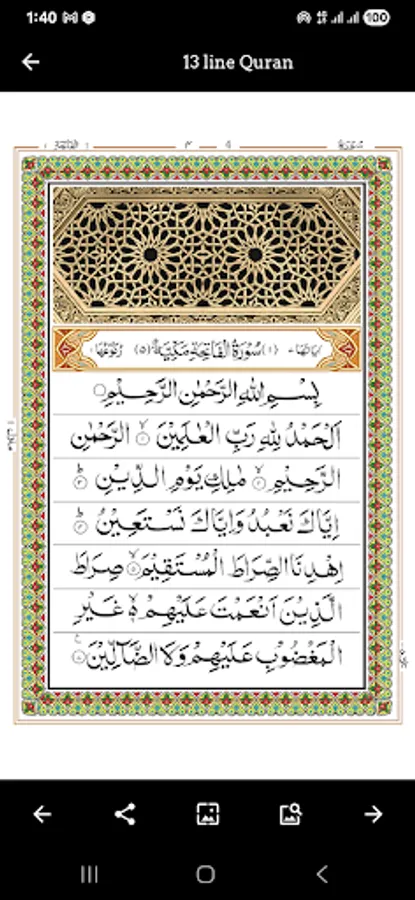 1:40
100
13 line Quran
سُوْرَةُ الْفَاتِحَةِ مَكِّيَّةٌ (٥)
بِسْمِ اللهِ الرَّحْمٰنِ الرَّحِيْمِ
اَلْحَمْدُ لِلّٰهِ رَبِّ الْعٰلَمِيْنَ ۙ الرَّحْمٰنِ
الرَّحِيْمِ ۙ مٰلِكِ يَوْمِ الدِّيْنِ
اِيَّاكَ نَعْبُدُ وَاِيَّاكَ نَسْتَعِيْنُ
اِهْدِنَا الصِّرَاطَ الْمُسْتَقِيْمَ ۙ صِرَاطَ
الَّذِيْنَ اَنْعَمْتَ عَلَيْهِمْ ۙ غَيْرِ
الْمَغْضُوْبِ عَلَيْهِمْ وَلَا الضَّآلِّيْنَ